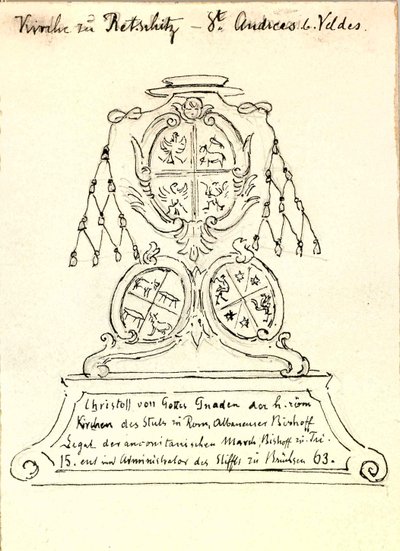 Kirche zu Retschitz – St. Andreas b. Veldes.
Christoff von Gottes Gnaden der h. röm
Kirchen des Stuls zu Rom, Albaneuser Bischoff
Legat der anconitanischen March Bischoff zu Tri-
15. ent und Administrator des Stiffts zu Brichsen 63.